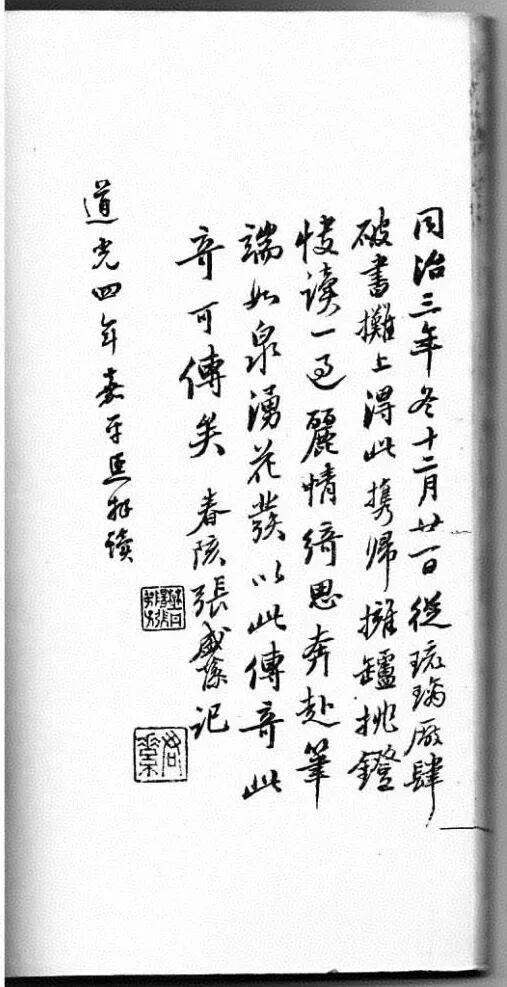 同治三年冬十二月廿一日從琉璃廠肆
破書攤上得此攜歸擁罏挑鐙
快讀一過麗情綺思奔赴筆
端如泉湧花發以此傳奇此
奇可傳矣 春陔張盛藻記
道光四年嘉平 讀